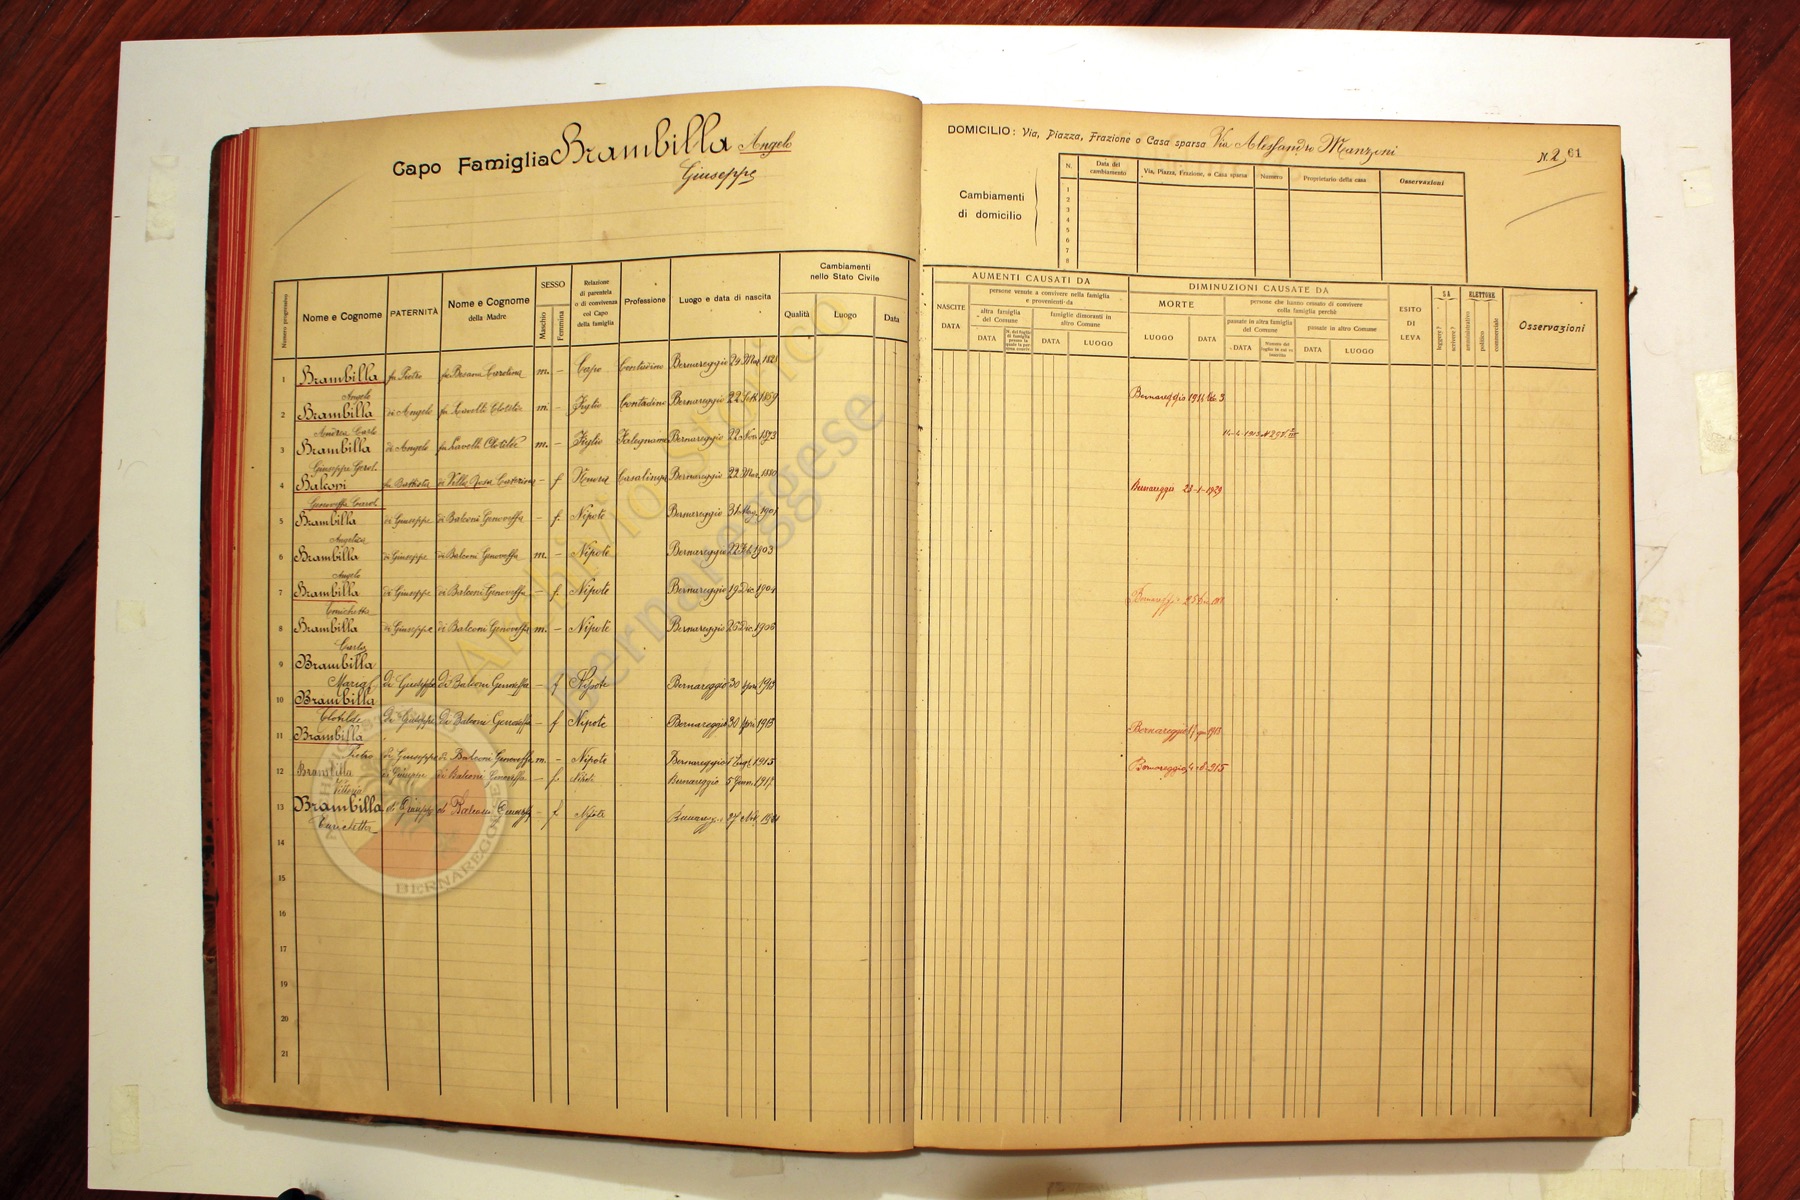 Capo Famiglia Brambilla Angelo
Giuseppe
Numero progressivo
Nome e Cognome
PATERNITÀ
Nome e Cognome della Madre
SESSO
Maschio
Femmina
Relazione di parentela o di convivenza col Capo della famiglia
Professione
Luogo e data di nascita
Cambiamenti nello Stato Civile
Qualità
Luogo
Data
1 Brambilla Angelo fu Pietro fu Besana Carolina m. – Capo Contadino Bernareggio 29 Mag. 1821
2 Brambilla Andrea Carlo di Angelo fu Ravelli Clotilde m. – Figlio Contadino Bernareggio 22 1859
3 Brambilla Giuseppe di Angelo fu Ravelli Clotilde m. – Figlio Falegname Bernareggio 22 Nov. 1873
4 Balconi Genoveffa Carol. fu Battista di Villa Rosa Caterina – f Nuora Casalinga Bernareggio 22 Mar. 1880
5 Brambilla Angelica di Giuseppe di Balconi Genoveffa – f. Nipote Bernareggio 31 1901
6 Brambilla Angelo di Giuseppe di Balconi Genoveffa m. – Nipote Bernareggio 22 Feb. 1903
7 Brambilla Enrichetta di Giuseppe di Balconi Genoveffa – f. Nipote Bernareggio 19 Dic. 1904
8 Brambilla Carlo di Giuseppe di Balconi Genoveffa m. – Nipote Bernareggio 25 Dic. 1906
9 Brambilla Maria di Giuseppe di Balconi Genoveffa – f Nipote Bernareggio 30 1913
10 Brambilla Clotilde di Giuseppe di Balconi Genoveffa – f Nipote Bernareggio 30 1913
11 Brambilla Pietro di Giuseppe di Balconi Genoveffa m. – Nipote Bernareggio 1 Lugl. 1915
12 Brambilla Vittoria di Giuseppe di Balconi Genoveffa – f. Nipote Bernareggio 5 Genn. 1917
13 Brambilla Enrichetta di Giuseppe di Balconi – f Nipote 27
14
15
16
17
18
19
20
21
DOMICILIO: Via, Piazza, Frazione o Casa sparsa Via Alessandro Manzoni
N. 2 61
Cambiamenti di domicilio
N.
Data del cambiamento
Via, Piazza, Frazione, o Casa sparsa
Numero
Proprietario della casa
Osservazioni
1
2
3
4
5
6
7
8
AUMENTI CAUSATI DA
NASCITE
DATA
persone venute a convivere nella famiglia e provenienti da
altra famiglia del Comune
DATA
N. del foglio di famiglia presso la quale la persona esciva
famiglie dimoranti in altro Comune
DATA
LUOGO
DIMINUZIONI CAUSATE DA
MORTE
LUOGO
DATA
persone che hanno cessato di convivere nella famiglia perchè
passate in altra famiglia del Comune
DATA
Numero del foglio in cui va inscritta
passate in altro Comune
DATA
LUOGO
ESITO DI LEVA
SA
leggere?
scrivere?
ELETTORE
amministrativo
politico
commerciale
Osservazioni
Bernareggio 3
14-4-1913
Bernareggio 28-1-1929
Bernareggio 25
Bernareggio 1913
Bernareggio 915
Archivio Storico
Bernareggese